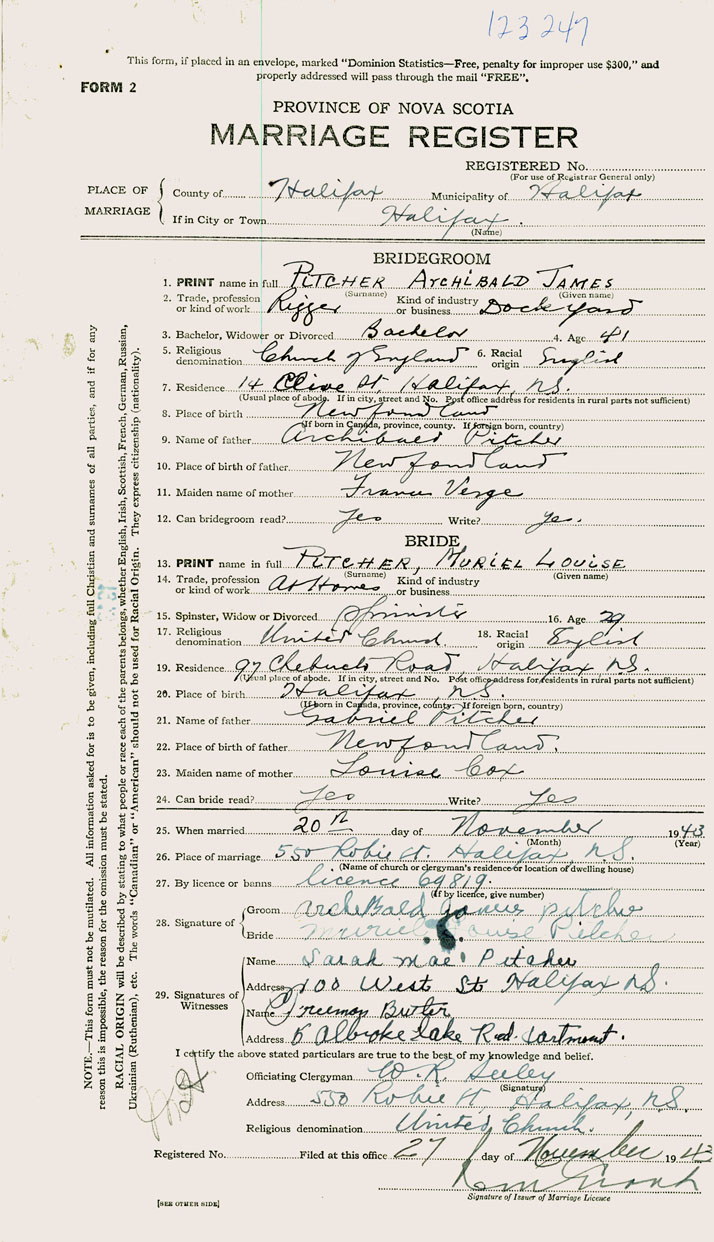 123 247
This form, if placed in an envelope, marked "Dominion Statistics—Free, penalty for improper use $300," and
properly addressed will pass through the mail "FREE".
FORM 2
PROVINCE OF NOVA SCOTIA
MARRIAGE REGISTER
REGISTERED No.
(For use of Registrar General only)
PLACE OF MARRIAGE
County of Halifax Municipality of Halifax
If in City or Town Halifax.
(Name)
BRIDEGROOM
1. PRINT name in full PITCHER ARCHIBALD JAMES
(Surname) (Given name)
2. Trade, profession or kind of work Rigger Kind of industry or business Dockyard
3. Bachelor, Widower or Divorced Bachelor 4. Age 41
5. Religious denomination Church of England 6. Racial origin English
7. Residence 14 Clive St, Halifax, N.S.
(Usual place of abode. If in city, street and No. Post office address for residents in rural parts not sufficient)
8. Place of birth Newfondland
(If born in Canada, province, county. If foreign born, country)
9. Name of father Archibald Pitcher
10. Place of birth of father Newfondland
11. Maiden name of mother Frances Verge
12. Can bridegroom read? Yes Write? yes.
BRIDE
13. PRINT name in full PITCHER, MURIEL LOUISE
(Surname) (Given name)
14. Trade, profession or kind of work at Home Kind of industry or business
15. Spinster, Widow or Divorced Spinster 16. Age 29
17. Religious denomination United Church. 18. Racial origin English
19. Residence 97 Chebucto Road, Halifax N.S.
(Usual place of abode. If in city, street and No. Post office address for residents in rural parts not sufficient)
20. Place of birth Halifax, N.S.
(If born in Canada, province, county. If foreign born, country)
21. Name of father Gabriel Pitcher
22. Place of birth of father Newfondland.
23. Maiden name of mother Louise Cox
24. Can bride read? Yes Write? Yes
25. When married 20th day of November 1943
(Month) (Year)
26. Place of marriage 550 Robie St. Halifax, N.S.
(Name of church or clergyman's residence or location of dwelling house)
27. By licence or banns licence 69819.
(If by licence, give number)
28. Signature of
Groom Archebald James pitcher
Bride Muriel Louise Pitcher
29. Signatures of Witnesses
Name Sarah Mae Pitcher
Address 100 West St Halifax N.S.
Name Freeman Butler
Address 5 Lake Rd. Dartmouth.
I certify the above stated particulars are true to the best of my knowledge and belief.
Officiating Clergyman W. R. Seeley
(Signature)
Address 550 Robie St, Halifax, N.S.
Religious denomination United Church.
Registered No. Filed at this office 27 day of November 1943
Signature of Issuer of Marriage Licence
[SEE OTHER SIDE]
NOTE.—This form must not be mutilated. All information asked for is to be given, including full Christian and surnames of all parties, and if for any
reason this is impossible, the reason for the omission must be stated.
RACIAL ORIGIN will be described by stating to what people or race each of the parents belongs, whether English, Irish, Scottish, French, German, Russian,
Ukrainian (Ruthenian), etc. The words "Canadian" or "American" should not be used for Racial Origin. They express citizenship (nationality).